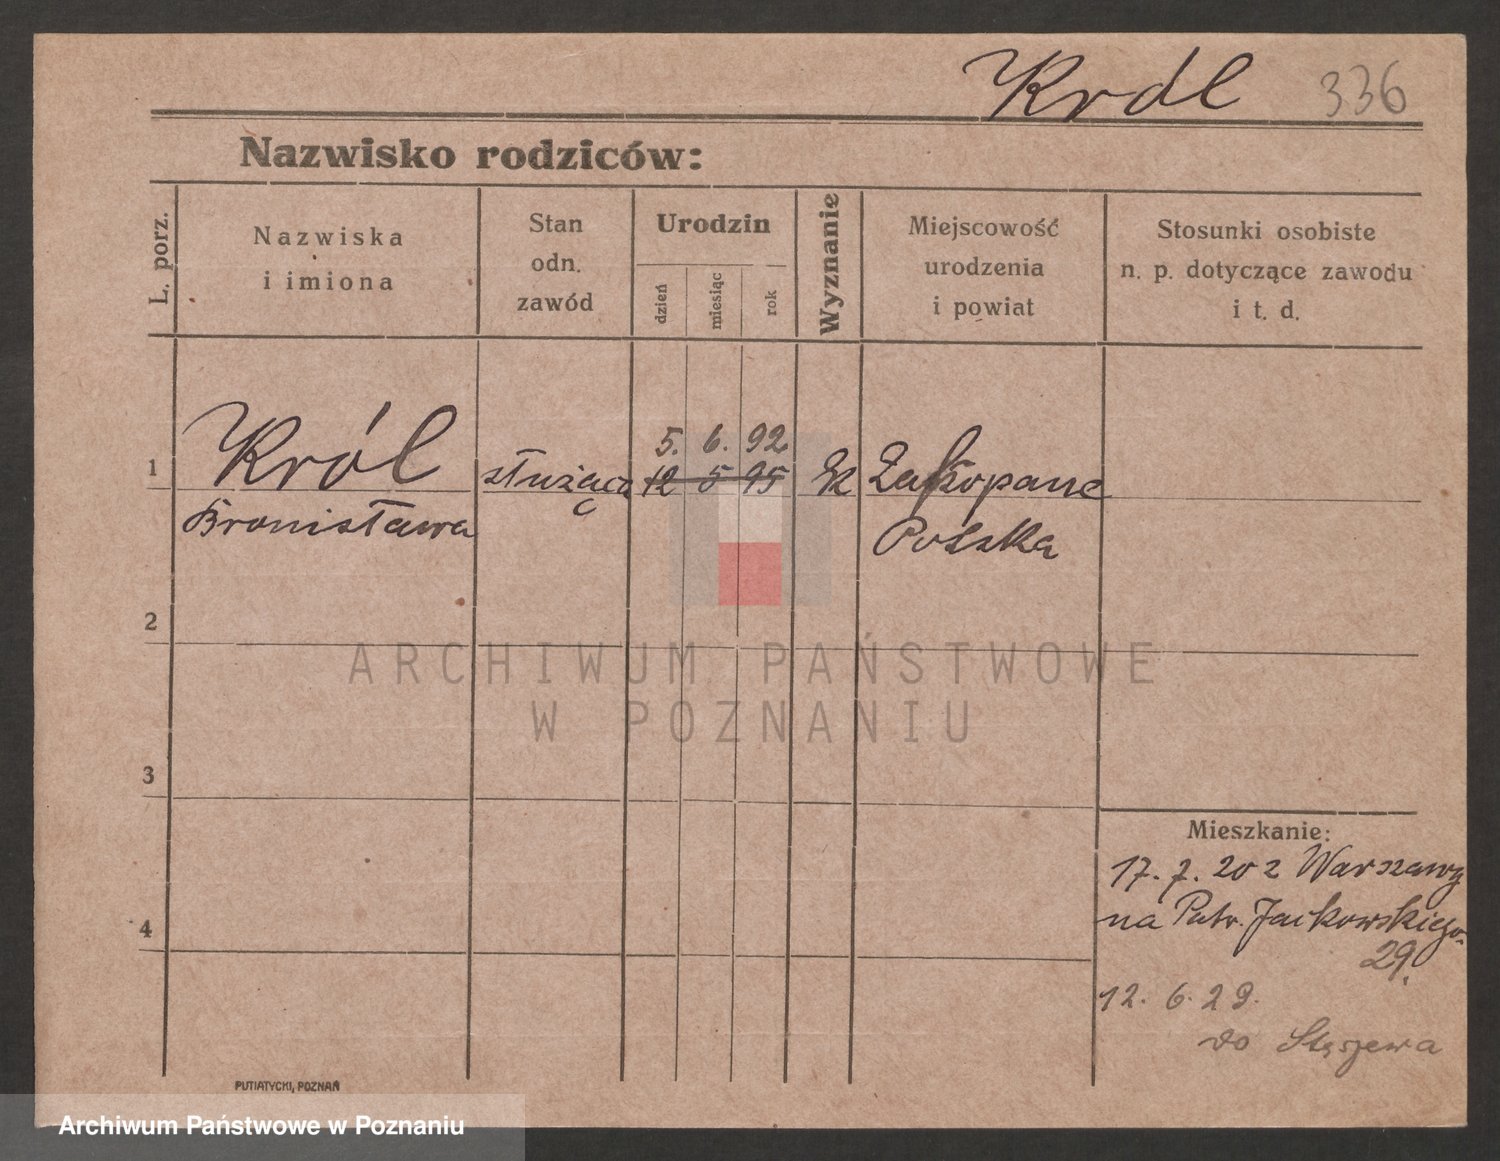 Król 336
Nazwisko rodziców:
L. porz.
Nazwiska
i imiona
Stan
odn.
zawód
Urodzin
dzień
miesiąc
rok
Wyznanie
Miejscowość
urodzenia
i powiat
Stosunki osobiste
n. p. dotyczące zawodu
i t. d.
5. 6. 92
1 Król służąca 12 5 95 rk Zakopane
Bronisława Polska
2
ARCHIWUM PAŃSTWOWE
W POZNANIU
3
Mieszkanie:
17. 7. 20 z Warszawy
4 na Patr. Jackowskiego
29.
12. 6. 29.
do Stęszewa
PUTIATYCKI, POZNAŃ
Archiwum Państwowe w Poznaniu